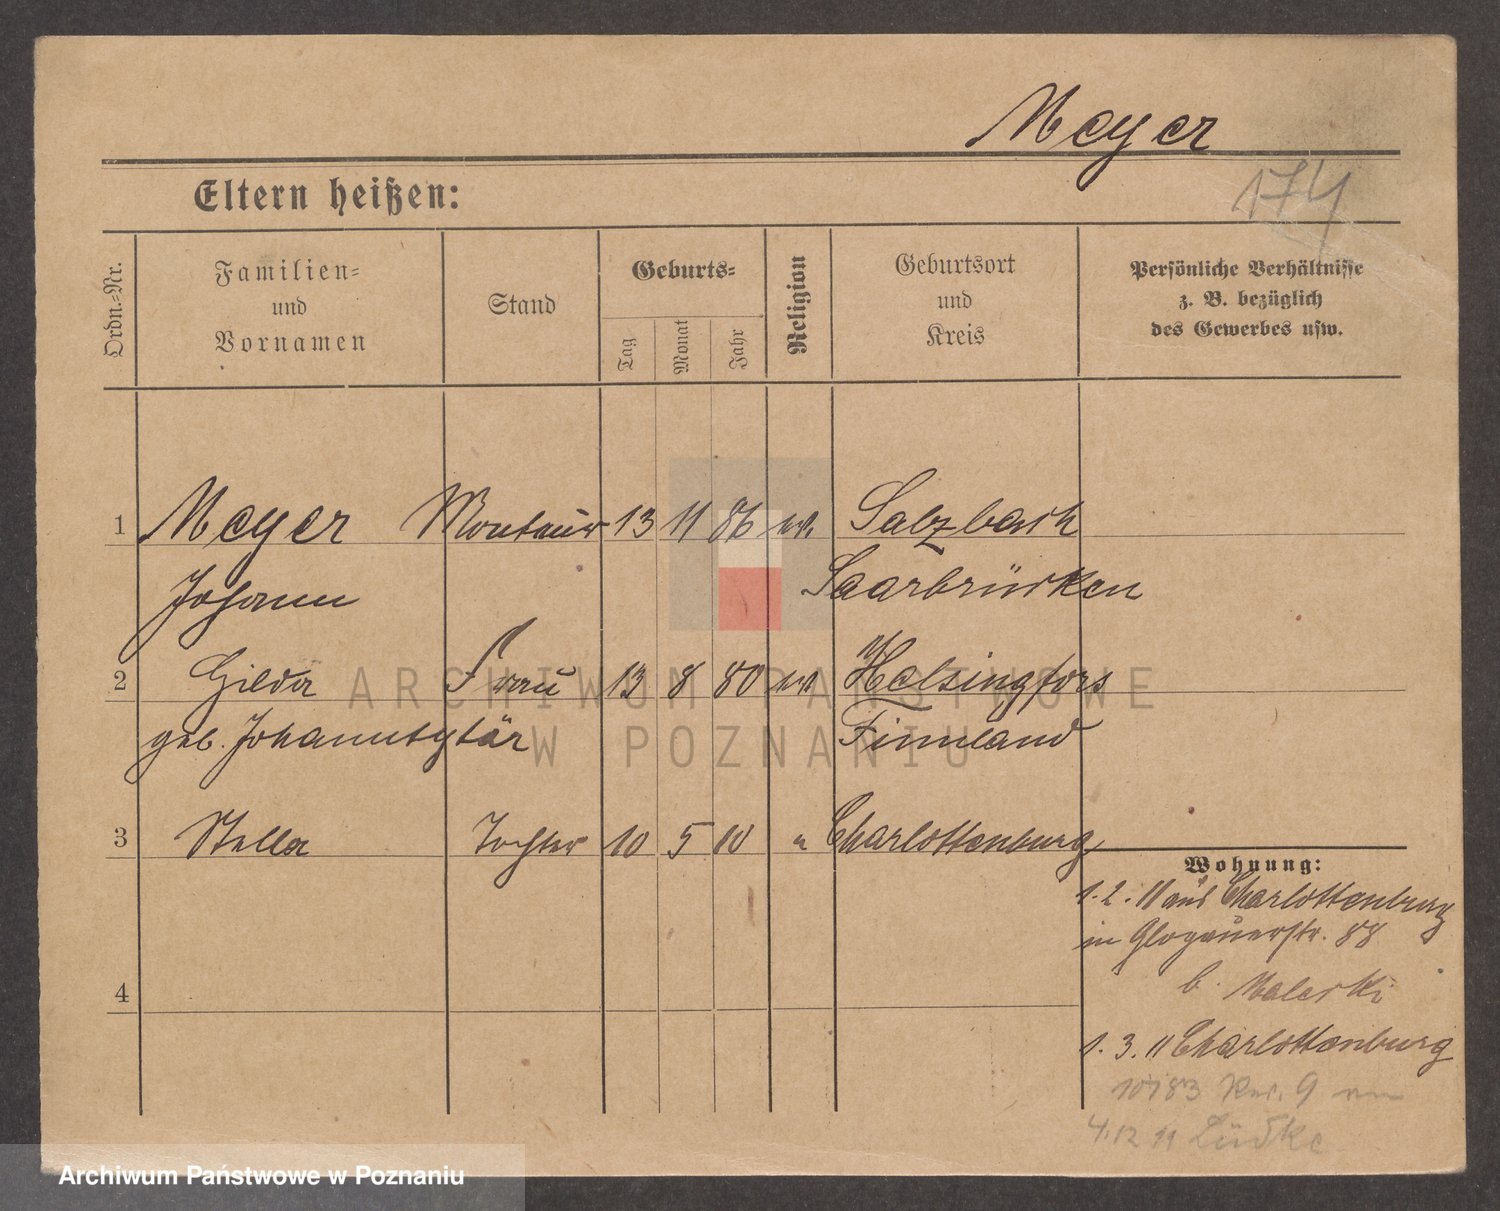 Meyer
174
Eltern heißen:
Ordn.-Nr.
Familien-
und
Vornamen
Stand
Geburts-
Tag
Monat
Jahr
Religion
Geburtsort
und
Kreis
Persönliche Verhältnisse
z. B. bezüglich
des Gewerbes usw.
1 Meyer Monteur 13 11 86 Salzbach
Johann Saarbrücken
2 Gilda Frau 13 8 80 Helsingfors
geb. Finnland
3 Stella Tochter 10 5 10 " Charlottenburg
Wohnung:
1. 2. 11 aus Charlottenburg
in Glogauerstr. 88
b.
4
1. 3. 11 Charlottenburg
10783
4.12 11 Lüdke
ARCHIWUM PAŃSTWOWE
W POZNANIU
Archiwum Państwowe w Poznaniu